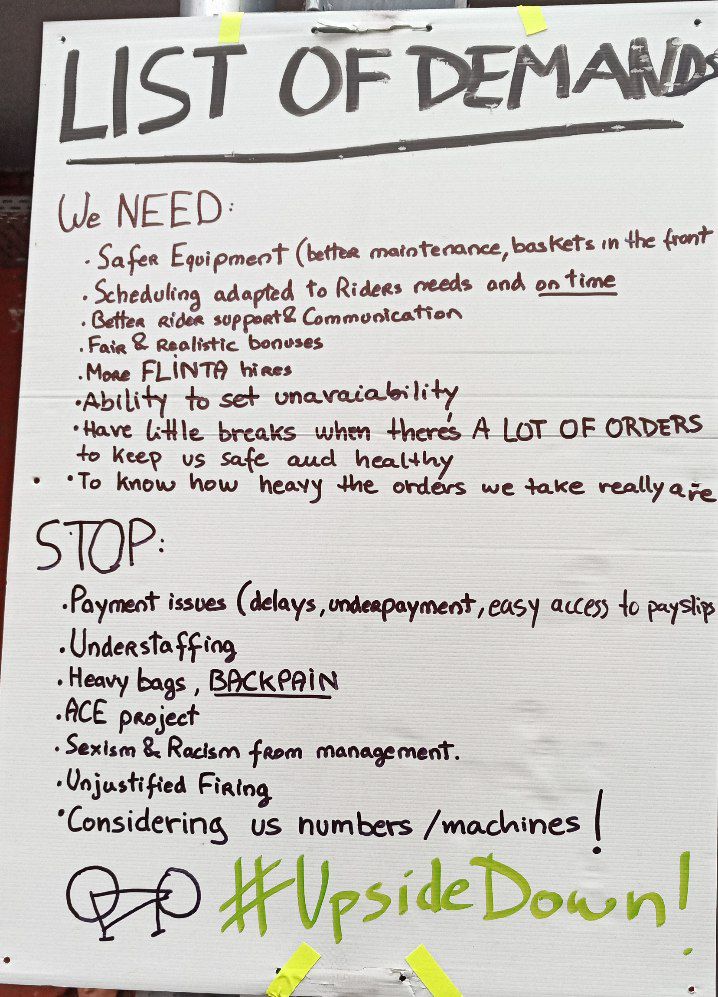 LIST OF DEMANDS
We NEED:
· Safer Equipment (better maintenance, baskets in the front
· Scheduling adapted to Riders needs and on time
· Better rider support & Communication
· Fair & Realistic bonuses
· More FLINTA hires
· Ability to set unavaiability
· Have little breaks when there's A LOT OF ORDERS
to keep us safe and healthy
· To know how heavy the orders we take really are
STOP:
· Payment issues (delays, underpayment, easy access to payslips
· Understaffing
· Heavy bags, BACKPAIN
· ACE project
· Sexism & Racism from management.
· Unjustified Firing
· Considering us numbers/machines!
#UpsideDown!